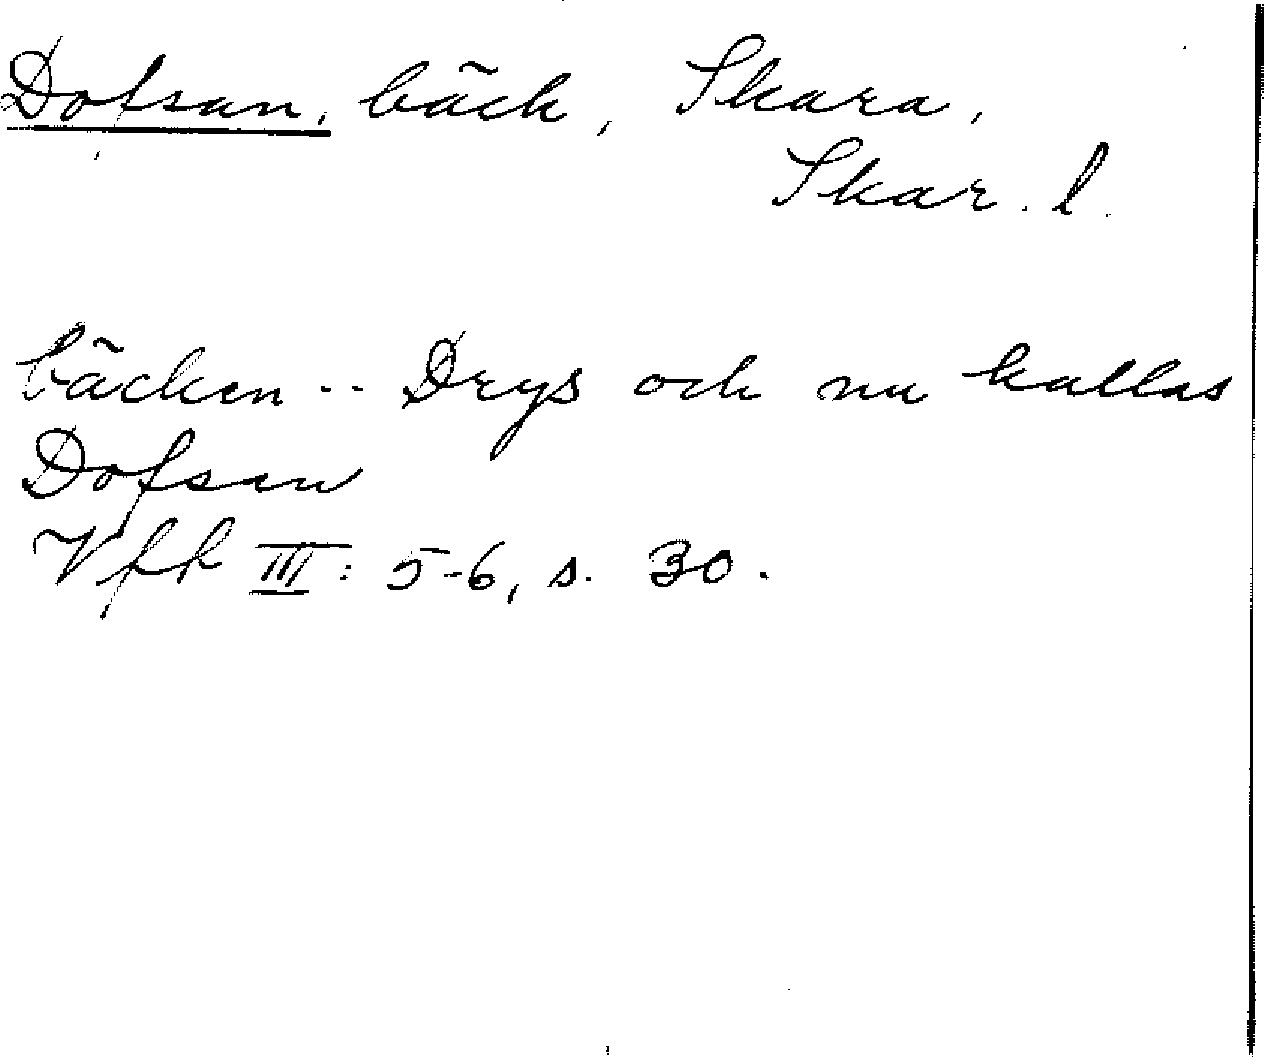 Dofsan, bäck, Skara,
Skar. l.
bäcken -- Drys och nu kallas
Dofsan
Vfk III: 5-6, s. 30.